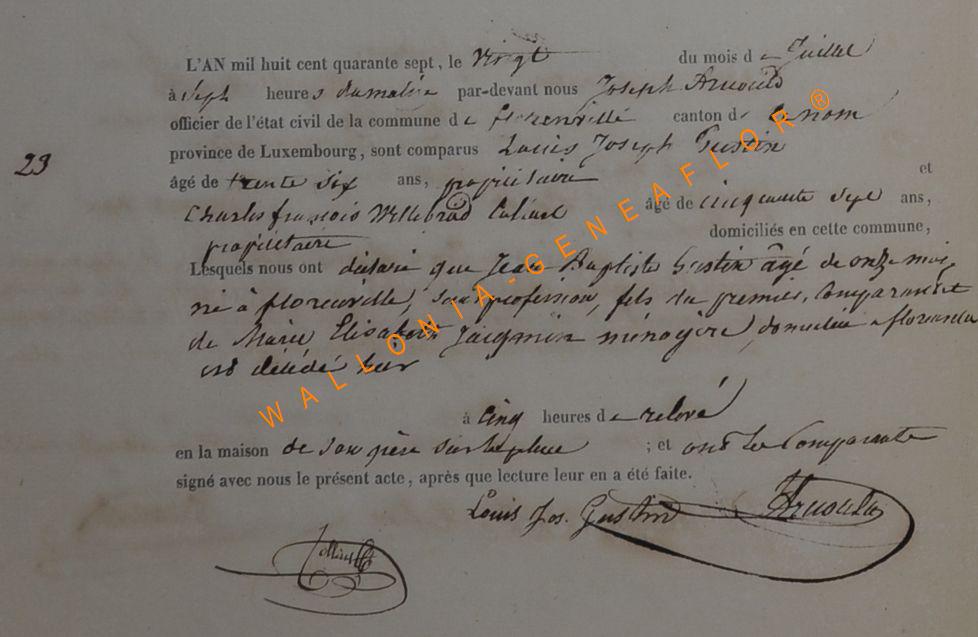 L'AN mil huit cent quarante sept, le Vingt du mois de Juillet
à Sept heures du matin par-devant nous Joseph Arnould
officier de l'état civil de la commune de florenville canton d dénom
23
province de Luxembourg, sont comparus Louis Joseph Gustin
âgé de trente six ans, propriétaire et
Charles françois Willebrod âgé de cinquante sept ans,
propriétaire domiciliés en cette commune,
Lesquels nous ont déclaré que Jean Baptiste Gustin âgé de onze mois
né à florenville, sans profession, fils du premier Comparant et
de Marie Elisabeth Jacqmin ménagère, domiciliée à florenville
est décédé hier
à Cinq heures de relevé
en la maison de son père sur la place ; et ont les Comparants
signé avec nous le présent acte, après que lecture leur en a été faite.
Louis Jos. Gustin Arnould
WALLONIA-GENEAFLOR®